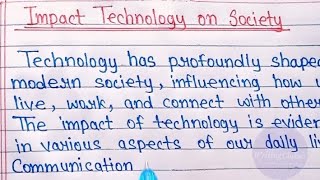 Impact Technology on Society
Technology has profoundly shaped
modern society, influencing how
live, work, and connect with other
The impact of technology is eviden
in various aspects of our daily li
Communication